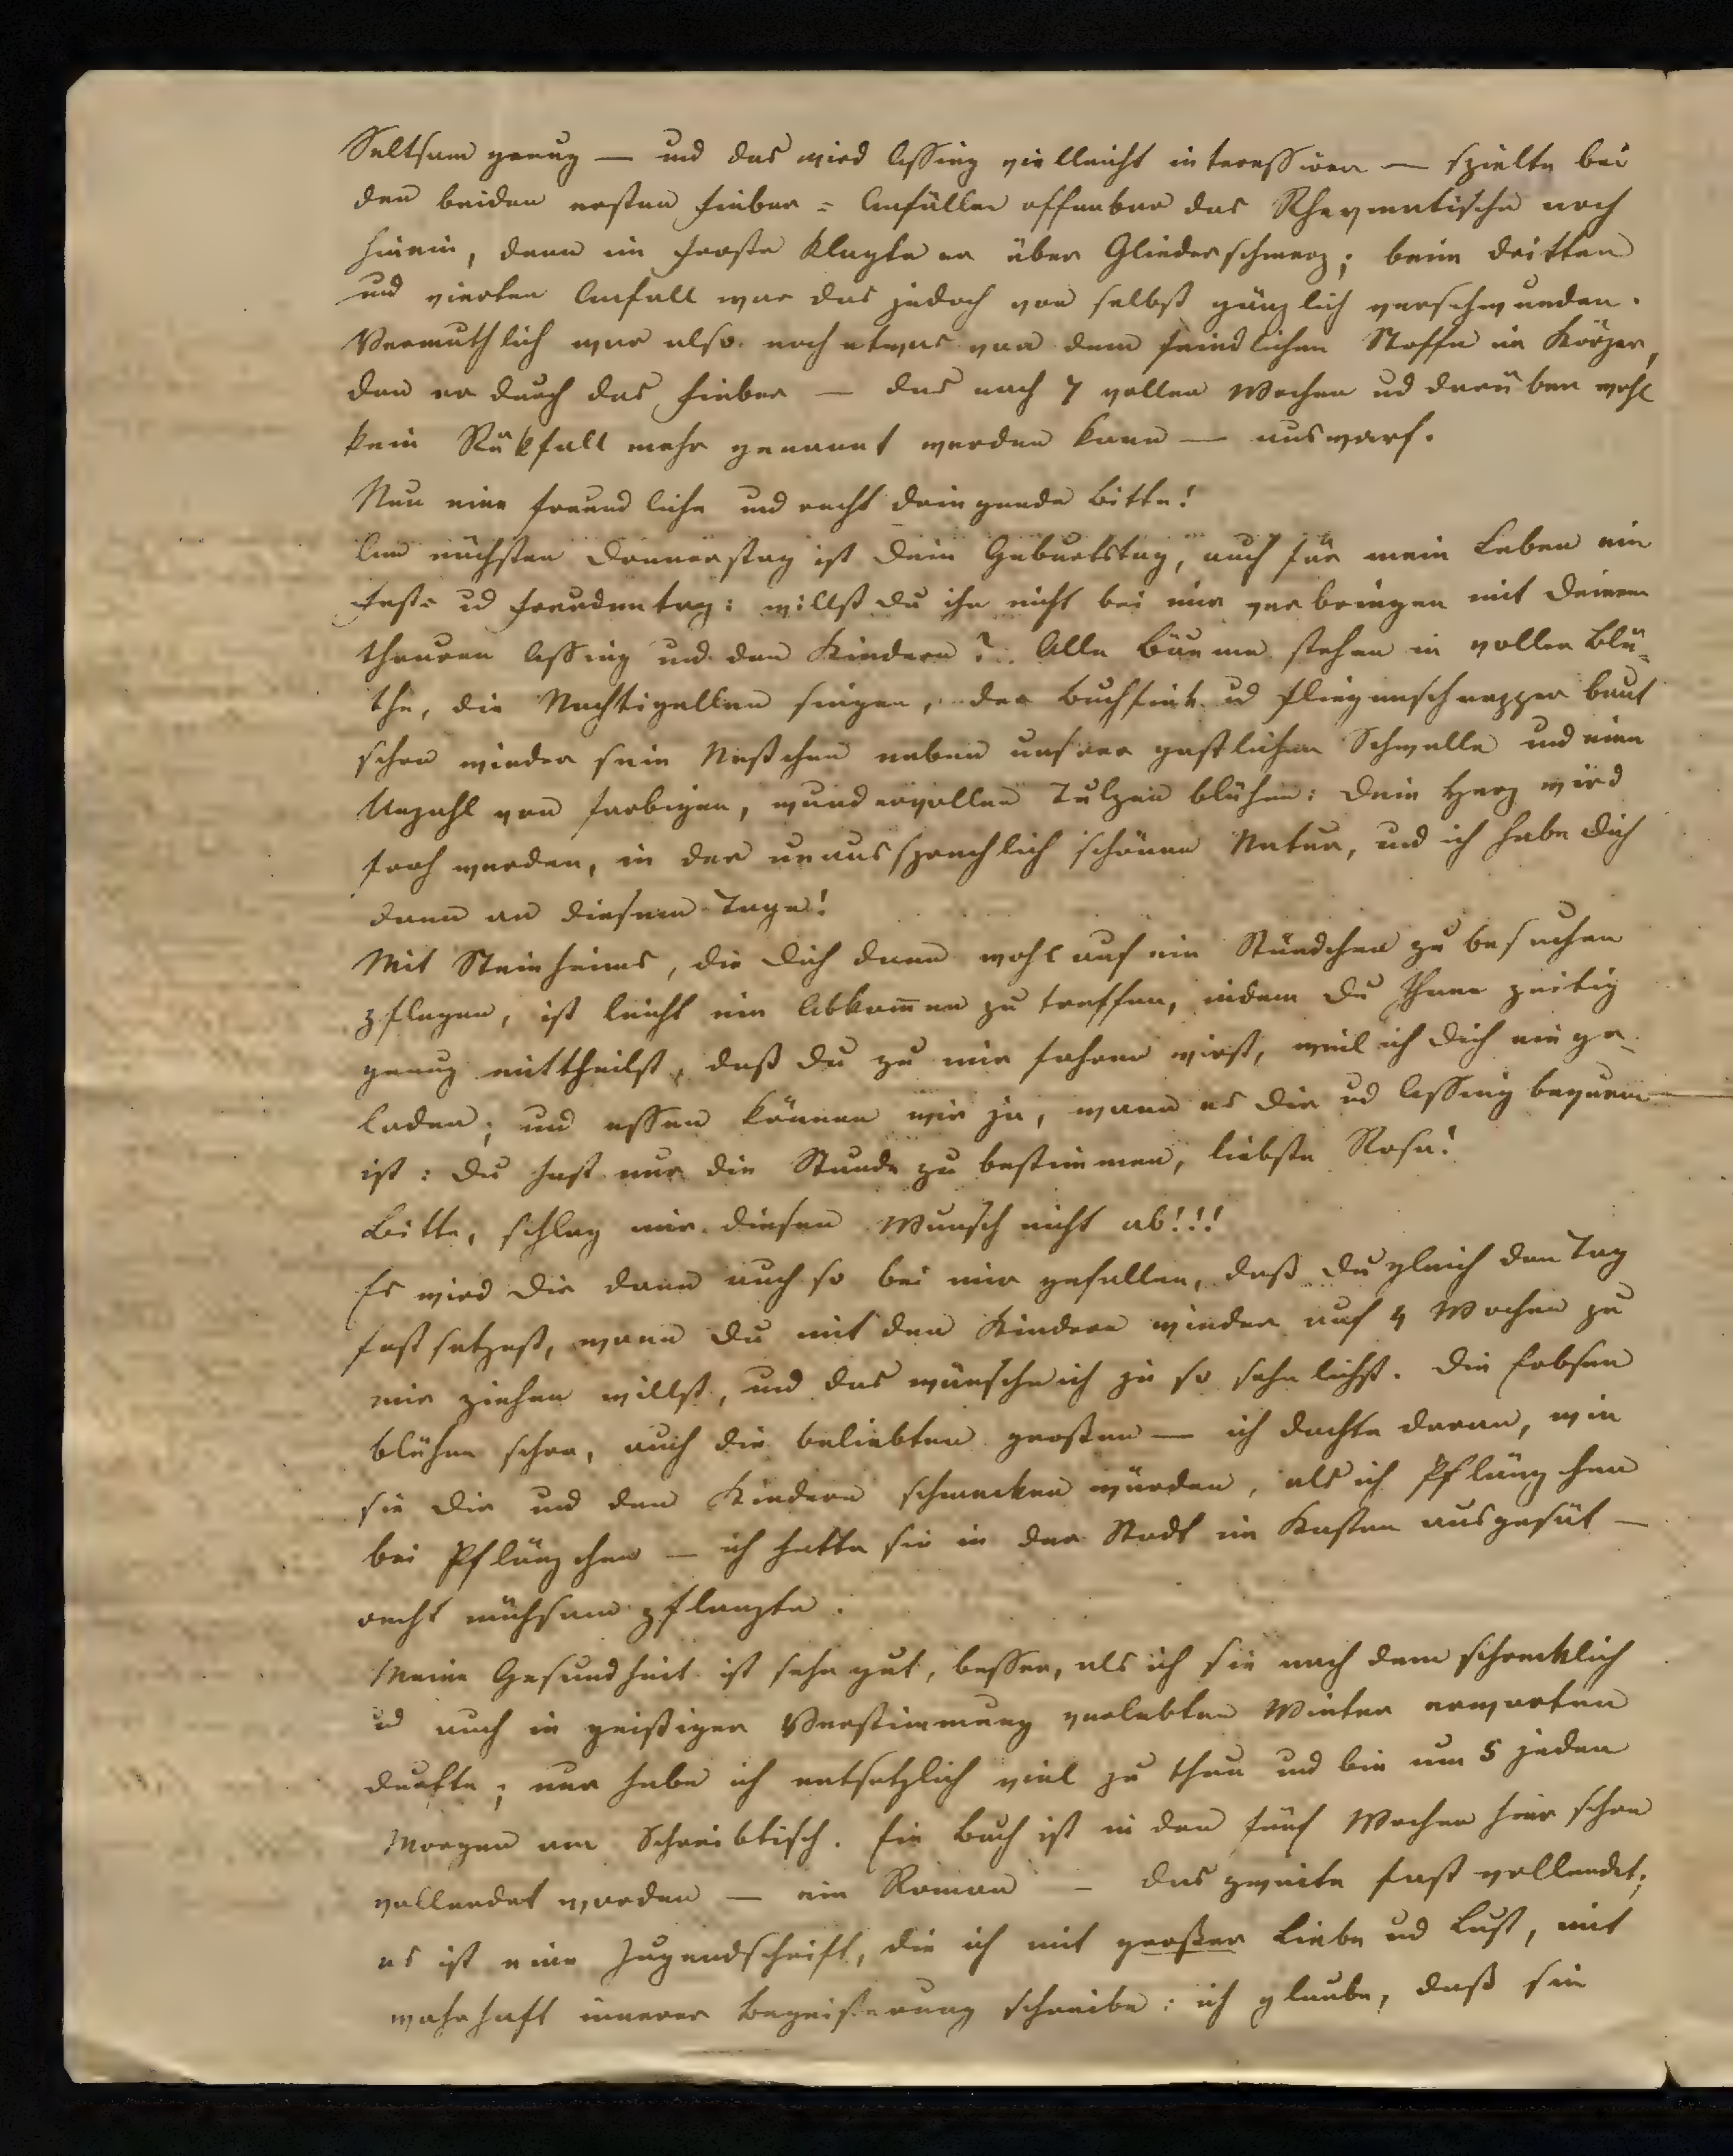 Seltsam genug — und das wird Assing vielleicht interessiren — spielte bei
den beiden ersten Fieber= Anfällen offenbar das Rheymatische noch
hinein, denn im Froste klagte er über Gliederschmerz; beim dritten
und vierten Anfall war das jedoch von selbst gänzlich verschwunden.
Vermuthlich war also noch etwas von dem feindlichen Stoffe im Körper,
den er durch das Fieber — das nach 7 vollen Wochen ud darüber wohl
kein Rükfall mehr genannt werden kann — auswarf.
Nun eine freundliche und recht dringende Bitte!
Am nächsten Donnerstag ist Dein Geburtstag, auch für mein Leben ein
Fest= ud Freudentag: willst Du ihn nicht bei mir verbringen mit Deinem
theuren Assing und den Kindern? Alle Bäume stehen in voller Blü=
the, die Nachtigallen singen, der Buchfink ud Fliegenschnapper baut
schon wieder sein Nestchen neben unsrer gastlichen Schwelle und eine
Unzahl von farbigen, wundervollen Tulpen blühen: Dein Herz wird
froh werden, in der unaussprechlich schönen Natur, und ich habe Dich
dann an diesem Tage!
Mit Steinheims, die Dich dann wohl auf ein Stündchen zu besuchen
pflegen, ist leicht ein Abkom̅en zu treffen, indem Du Ihnen zeitig
genug mittheilst, daß Du zu mir fahren wirst, weil ich Dich einge=
laden; und essen können wir ja, wann es Dir ud Assing bequem
ist: Du hast nur die Stunde zu bestimmen, liebste Rosa!
Bitte, schlag mir diesen Wunsch nicht ab!!!
Es wird Dir dann auch so bei mir gefallen, daß Du gleich den Tag
festsetzest, wann Du mit den Kindern wieder auf 4 Wochen zu
mir ziehen willst, und das wünsche ich ja so sehnlichst. Die Erbsen
blühen schon, auch die beliebten großen — ich dachte daran, wie
sie Dir und den Kindern schmecken würden, als ich Pflänzchen
bei Pflänzchen — ich hatte sie in der Stadt im Kasten ausgesät —
recht mühsam pflanzte.
Meine Gesundheit ist sehr gut, besser, als ich sie nach dem schrecklich
ud auch in geistiger Verstimmung verlebten Winter erwarten
durfte; nur habe ich entsetzlich viel zu thun und bin um 5 jeden
Morgen am Schreibtisch. Ein Buch ist in den fünf Wochen hier schon
vollendet worden — ein Roman — das zweite fast vollendet;
es ist eine Jugendschrift, die ich mit großer Liebe ud Lust, mit
wahrhaft innerer Begeisterung schreibe: ich glaube, daß sie